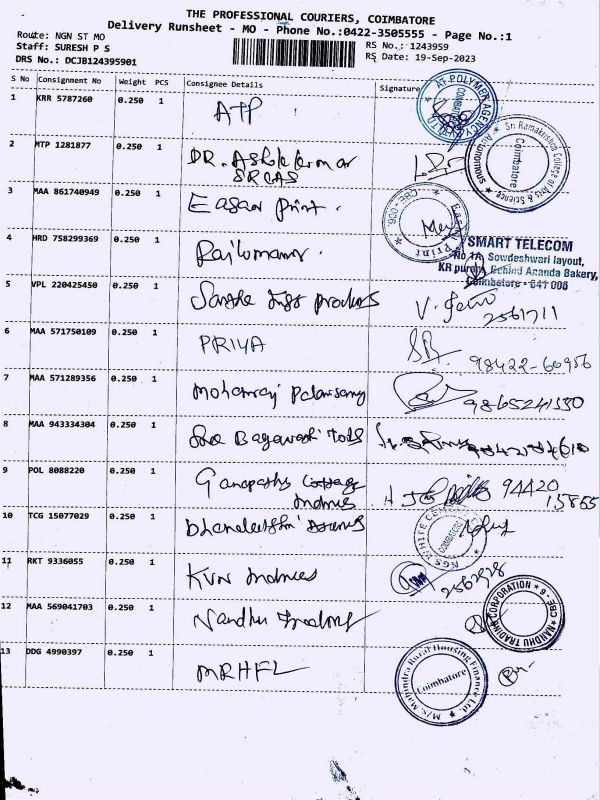 THE PROFESSIONAL COURIERS, COIMBATORE
Delivery Runsheet - MO - Phone No.:0422-3505555 - Page No.:1
Route: NGN ST MO
Staff: SURESH P S
DRS No.: DCJB124395901
RS No.: 1243959
RS Date: 19-Sep-2023
S No Consignment No Weight PCS Consignee Details Signature
1 KRR 5787260 0.250 1 ATP
AT.POLYMER AGENCY
2 MTP 1281877 0.250 1 DR. Ashok kumar
SRCAS
Sri Ramakrishna College of Arts & Science Autonomous Coimbatore
3 MAA 861740949 0.250 1 Easan Print.
Easan Print CBE-006.
4 HRD 758299369 0.250 1 Rajkumar.
SMART TELECOM
No 1A, Sowdeshwari layout,
KR puram, Behind Ananda Bakery,
Coimbatore - 641 006
5 VPL 220425450 0.250 1 products
2561711
6 MAA 571750109 0.250 1 PRIYA
98422-60956
7 MAA 571289356 0.250 1 Mohanraj Palanisamy
8 MAA 943334304 0.250 1 Sree Bagavathi Tools
9 POL 8088220 0.250 1 Ganapathy Cottage
Indus 94420
15855
10 TCG 15077029 0.250 1
NGS WHITE COIMBATORE
11 RKT 9336055 0.250 1 KVN Induies
2562928
12 MAA 569041703 0.250 1 Nandhu Trading
NANDHU TRADING CORPORATION CBE-6
13 DDG 4990397 0.250 1 MRHFL
M/S. Mahindra Rural Housing Finance Ltd. Coimbatore